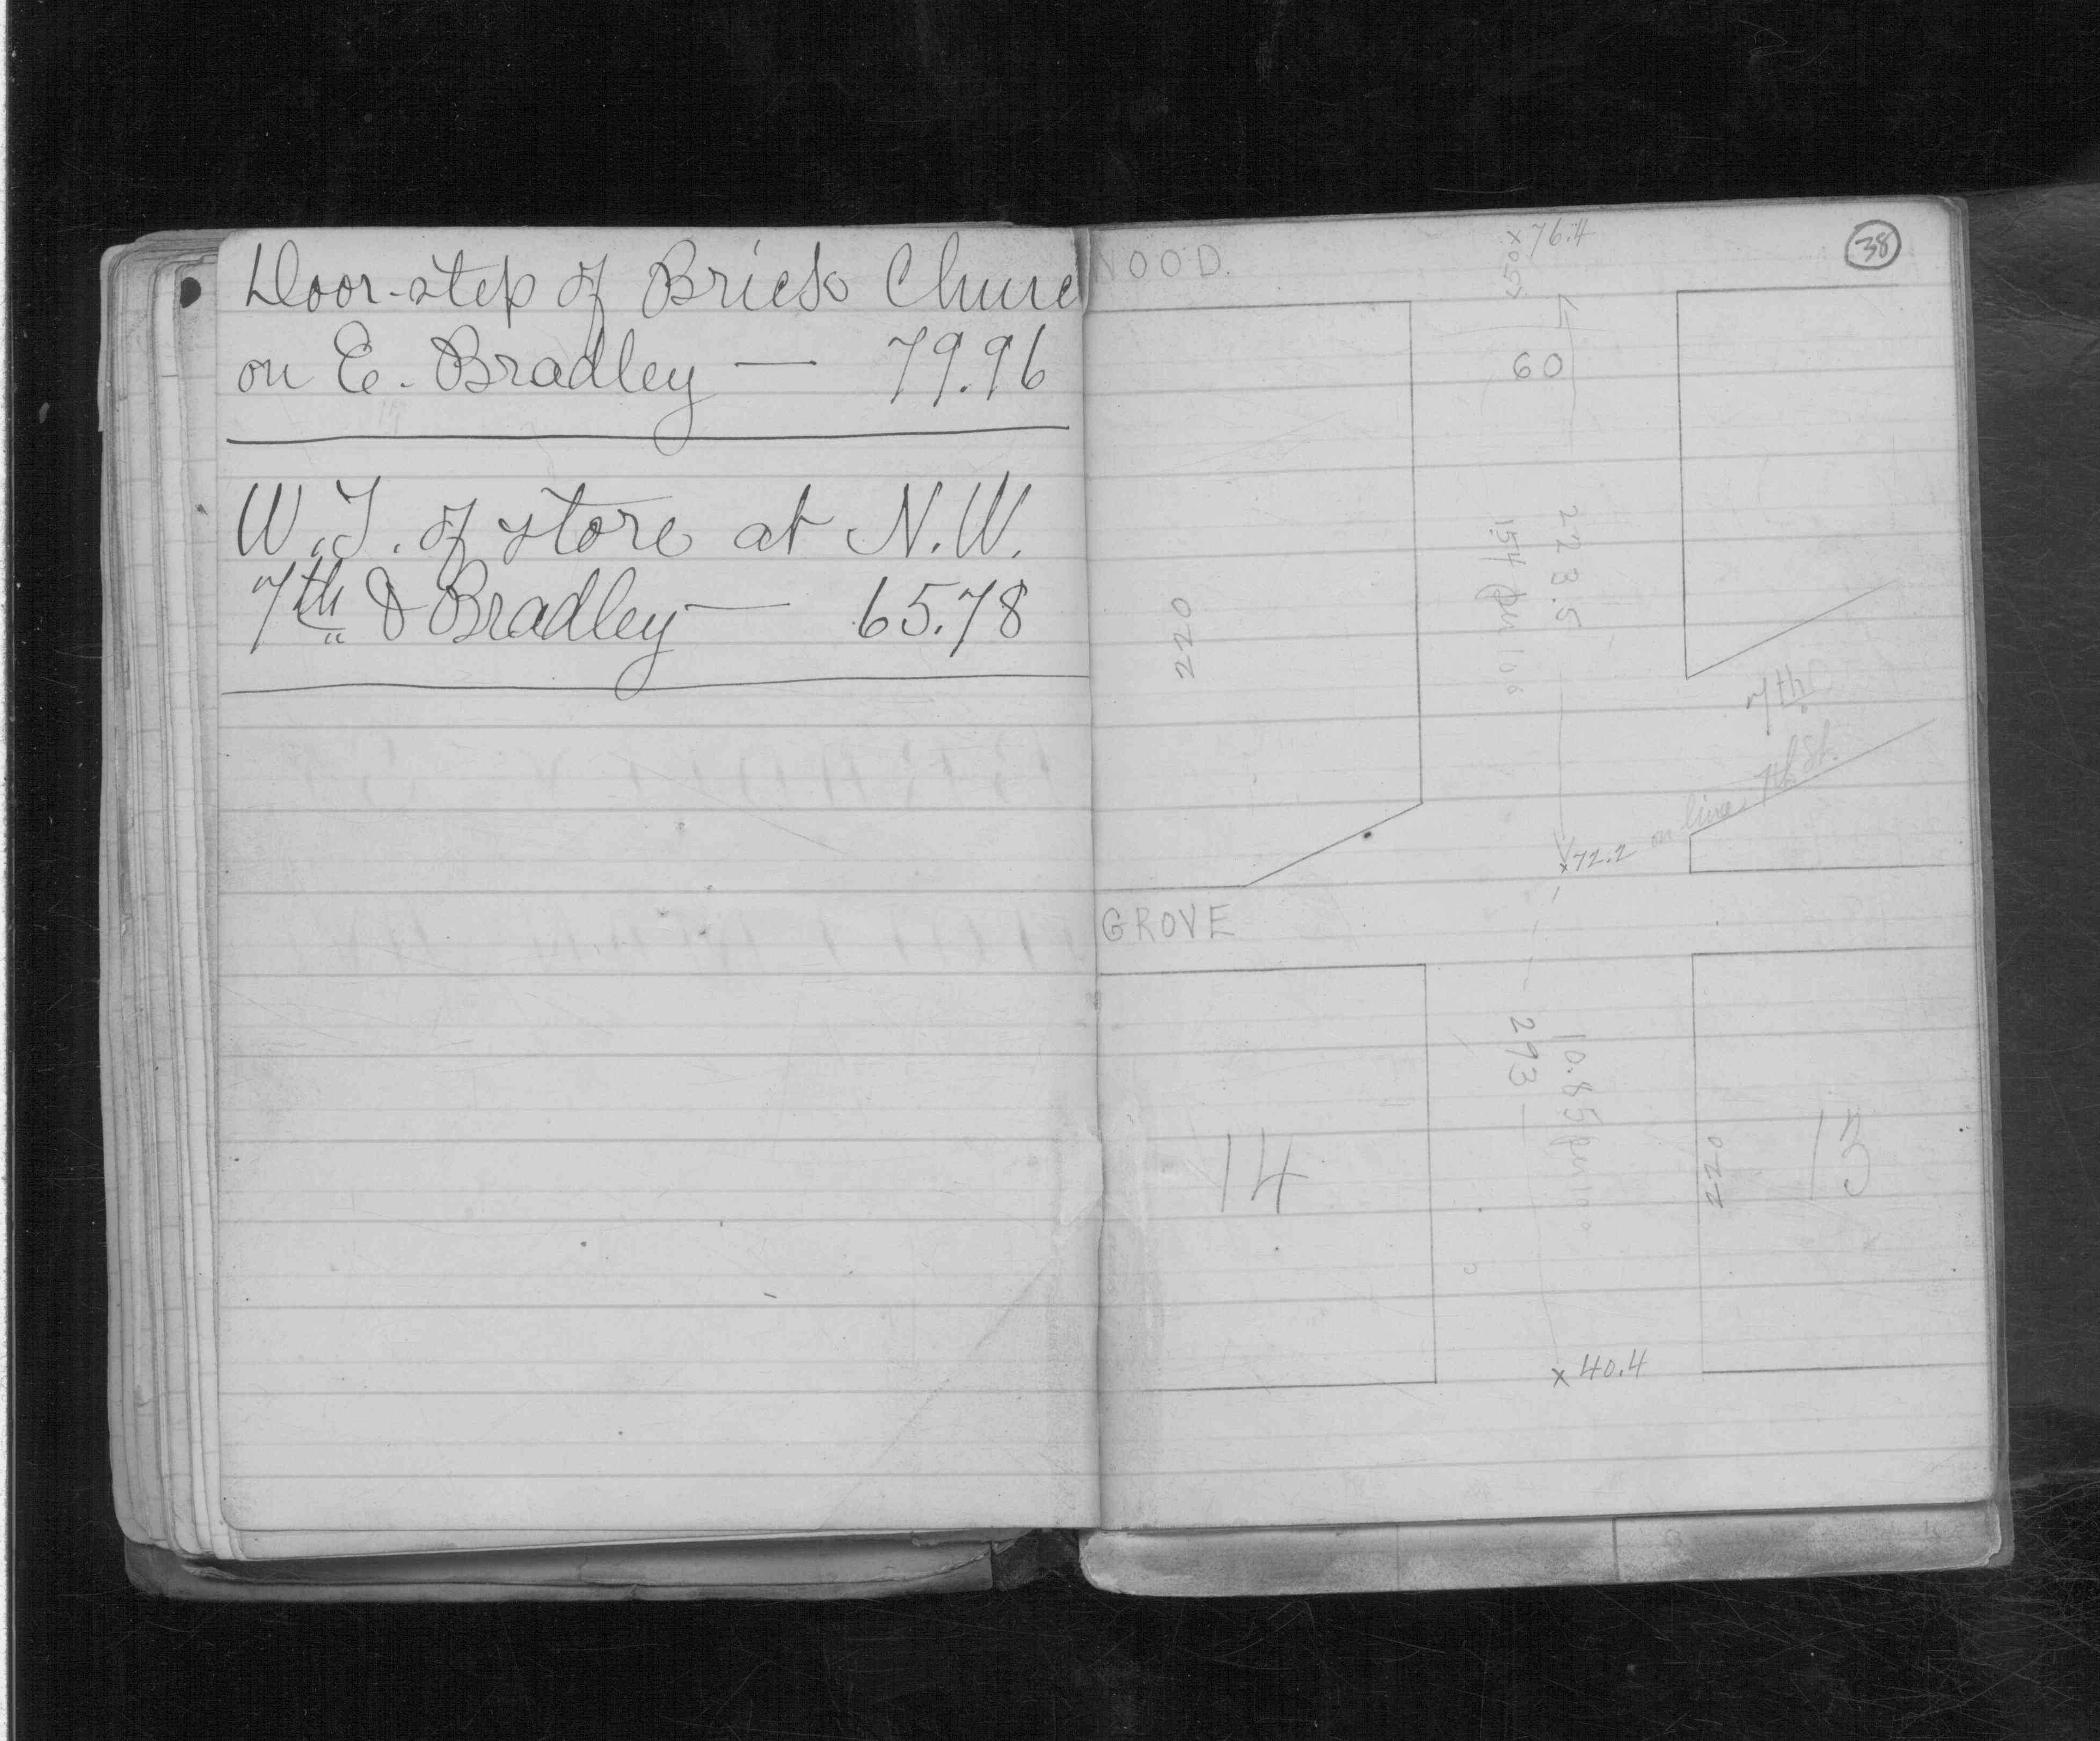 Door-step of Brick Churc
on E. Bradley — 79.96
W.T. of store at N.W.
7th & Bradley — 65.78
38
WOOD.
x76.4
50.5
60
223.5
1.54 per 100
220
7th
x72.2 on line 7th St.
GROVE
293
10.85 per 100
14
220
13
x 40.4